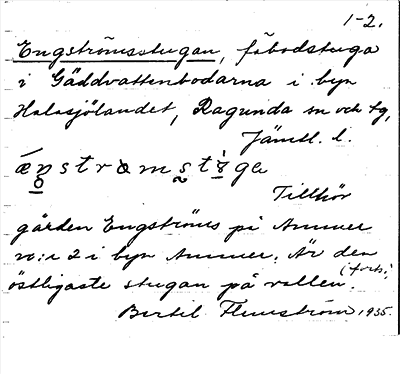 1-2.
Engströmsstugan, fäbodstuga
i Gäddvattenbodarna i byn
Halasjölandet, Ragunda sn och tg,
Jämtl. l.
Tillhör
gården Engströms på Ammer
no:r 2 i byn Ammer. Är den
östligaste stugan på vallen.
(forts.)
Bertil Flemström 1935.